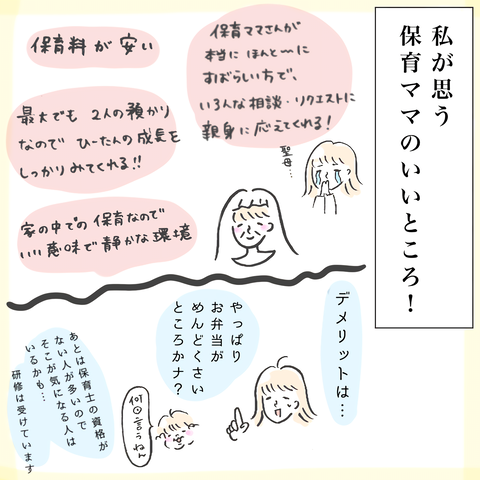 私が思う
保育ママのいいところ！
保育ママさんが
本当に ほんと〜に
すばらしい方で、
いろんな相談・リクエストに
親身に応えてくれる！
聖母…
保育料が安い
最大でも 2人の預かり
なので ひーたんの成長を
しっかりみてくれる!!
家の中での保育なので
いい意味で静かな環境
デメリットは…
やっぱり
お弁当が
めんどくさい
ところかナ？
何回言うねん
あとは保育士の資格が
ない人が多いので
そこが気になる人は
いるかも…
研修は受けています